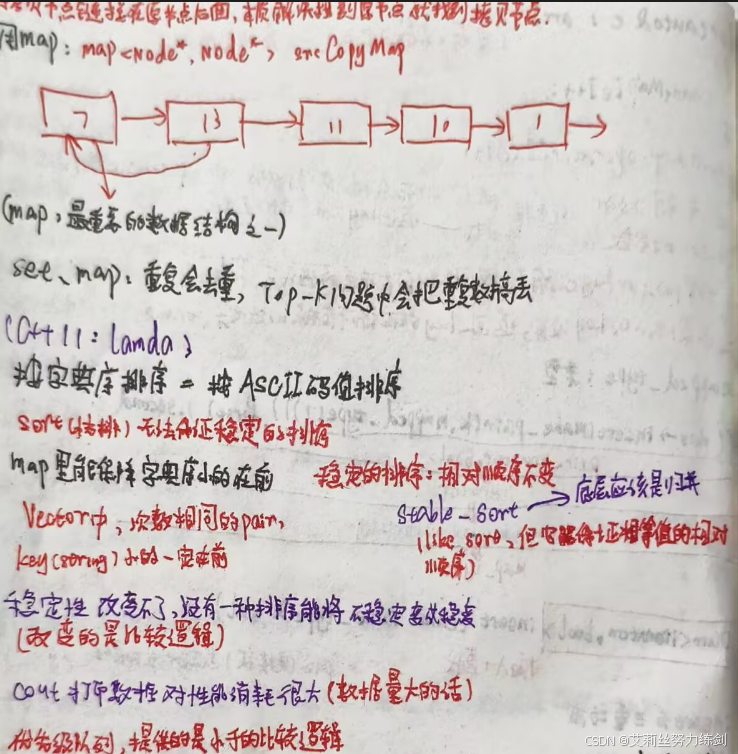 拷贝节点创建挂在原节点后面,本质解决找到原节点就找到拷贝节点.
用map: map<Node*, Node*> srcCopyMap
7 13 11 10 1
(map:最重要的数据结构之一)
set、map:重复会去重,Top-K问题中会把重复数搞丢
(C++11: lamda)
按字典序排序 = 按ASCII码值排序
sort(快排)无法保证稳定的排序
map里能保障字典序小的在前
稳定的排序:相对顺序不变
Vector中,次数相同的pair,
stable_sort → 底层应该是归并
key(string)小的一定在前
(like sort,但它能保证相等值的相对
顺序)
稳定性改变不了,还有一种排序能将不稳定变成稳定
(改变的是比较逻辑)
cout打印数据对性能消耗很大(数据量大的话)
优先级队列,提供的是小于的比较逻辑
CSDN @艾莉丝努力练剑